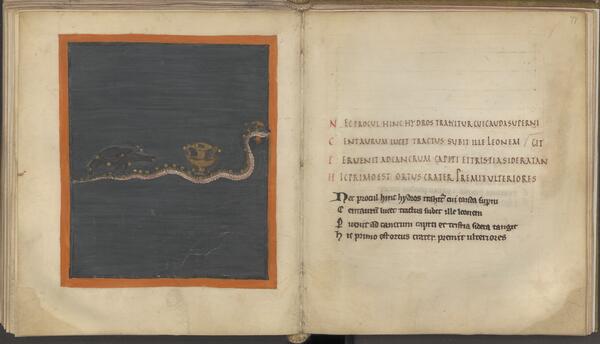 NEC PROCUL HINC HYDROS TRAHITUR CUI CAUDA SUPERNI
CENTAURUM LUCET TRACTUS SUBIT ILLE LEONEM GIT
PERVENIT AD CANCRUM CAPITI ET TRISTIA SIDERA TAN
HIC PRIMO EST ORTUS CRATER PREMIT ULTERIORES
Nec procul hinc hydros trahit cui cauda
Centaurū lucet tractus subit ille leonem
Puenit ad cancrum capiti et tristia sidera tangit
Hic primo est ortus crater premit ulteriores